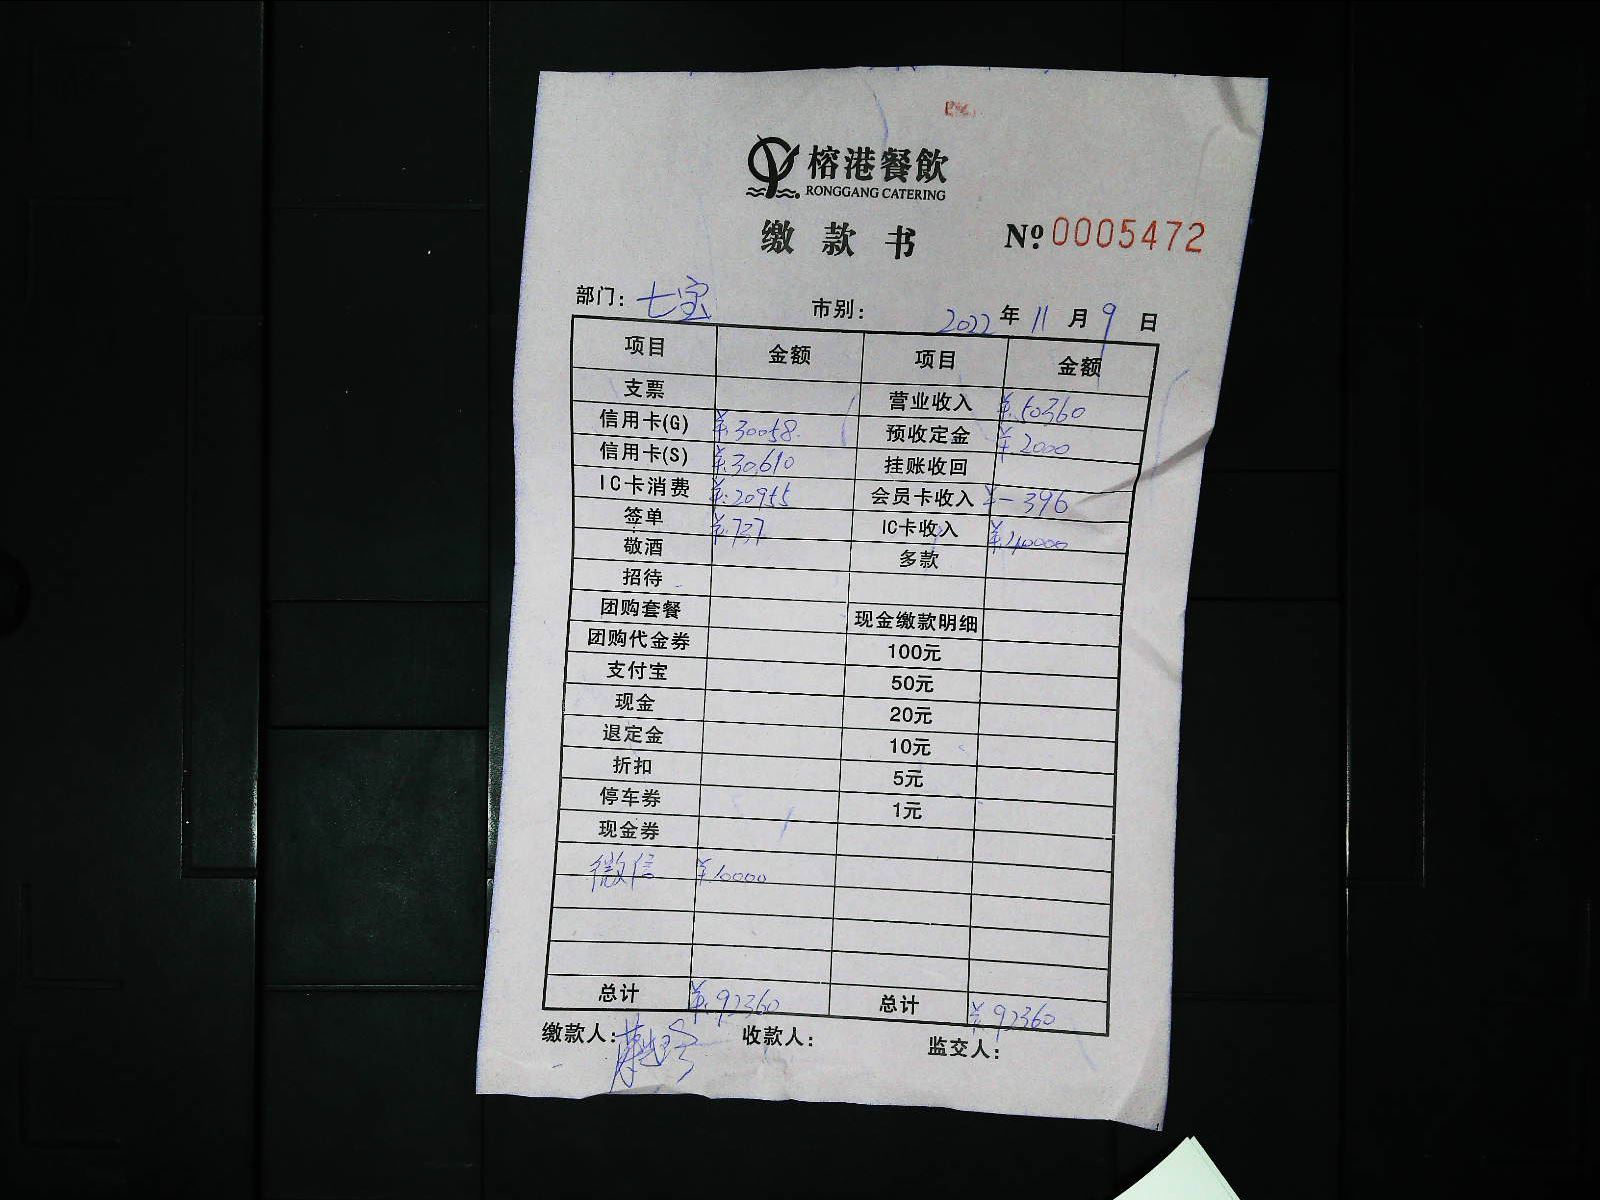 榕港餐飲
RONGGANG CATERING
缴款书 №0005472
部门: 七宝 市别: 2022年11月9日
项目 金额 项目 金额
支票 营业收入 ¥.50360
信用卡(G) ¥.30058. 预收定金 ¥.2000
信用卡(S) ¥.30610 挂账收回
IC卡消费 ¥.20955 会员卡收入 ¥-396
签单 ¥.737 IC卡收入 ¥.40000
敬酒 多款
招待
团购套餐 现金缴款明细
团购代金券 100元
支付宝 50元
现金 20元
退定金 10元
折扣 5元
停车券 1元
现金券
微信 ¥.10000
总计 ¥.92360 总计 ¥.92360
缴款人: 收款人: 监交人: